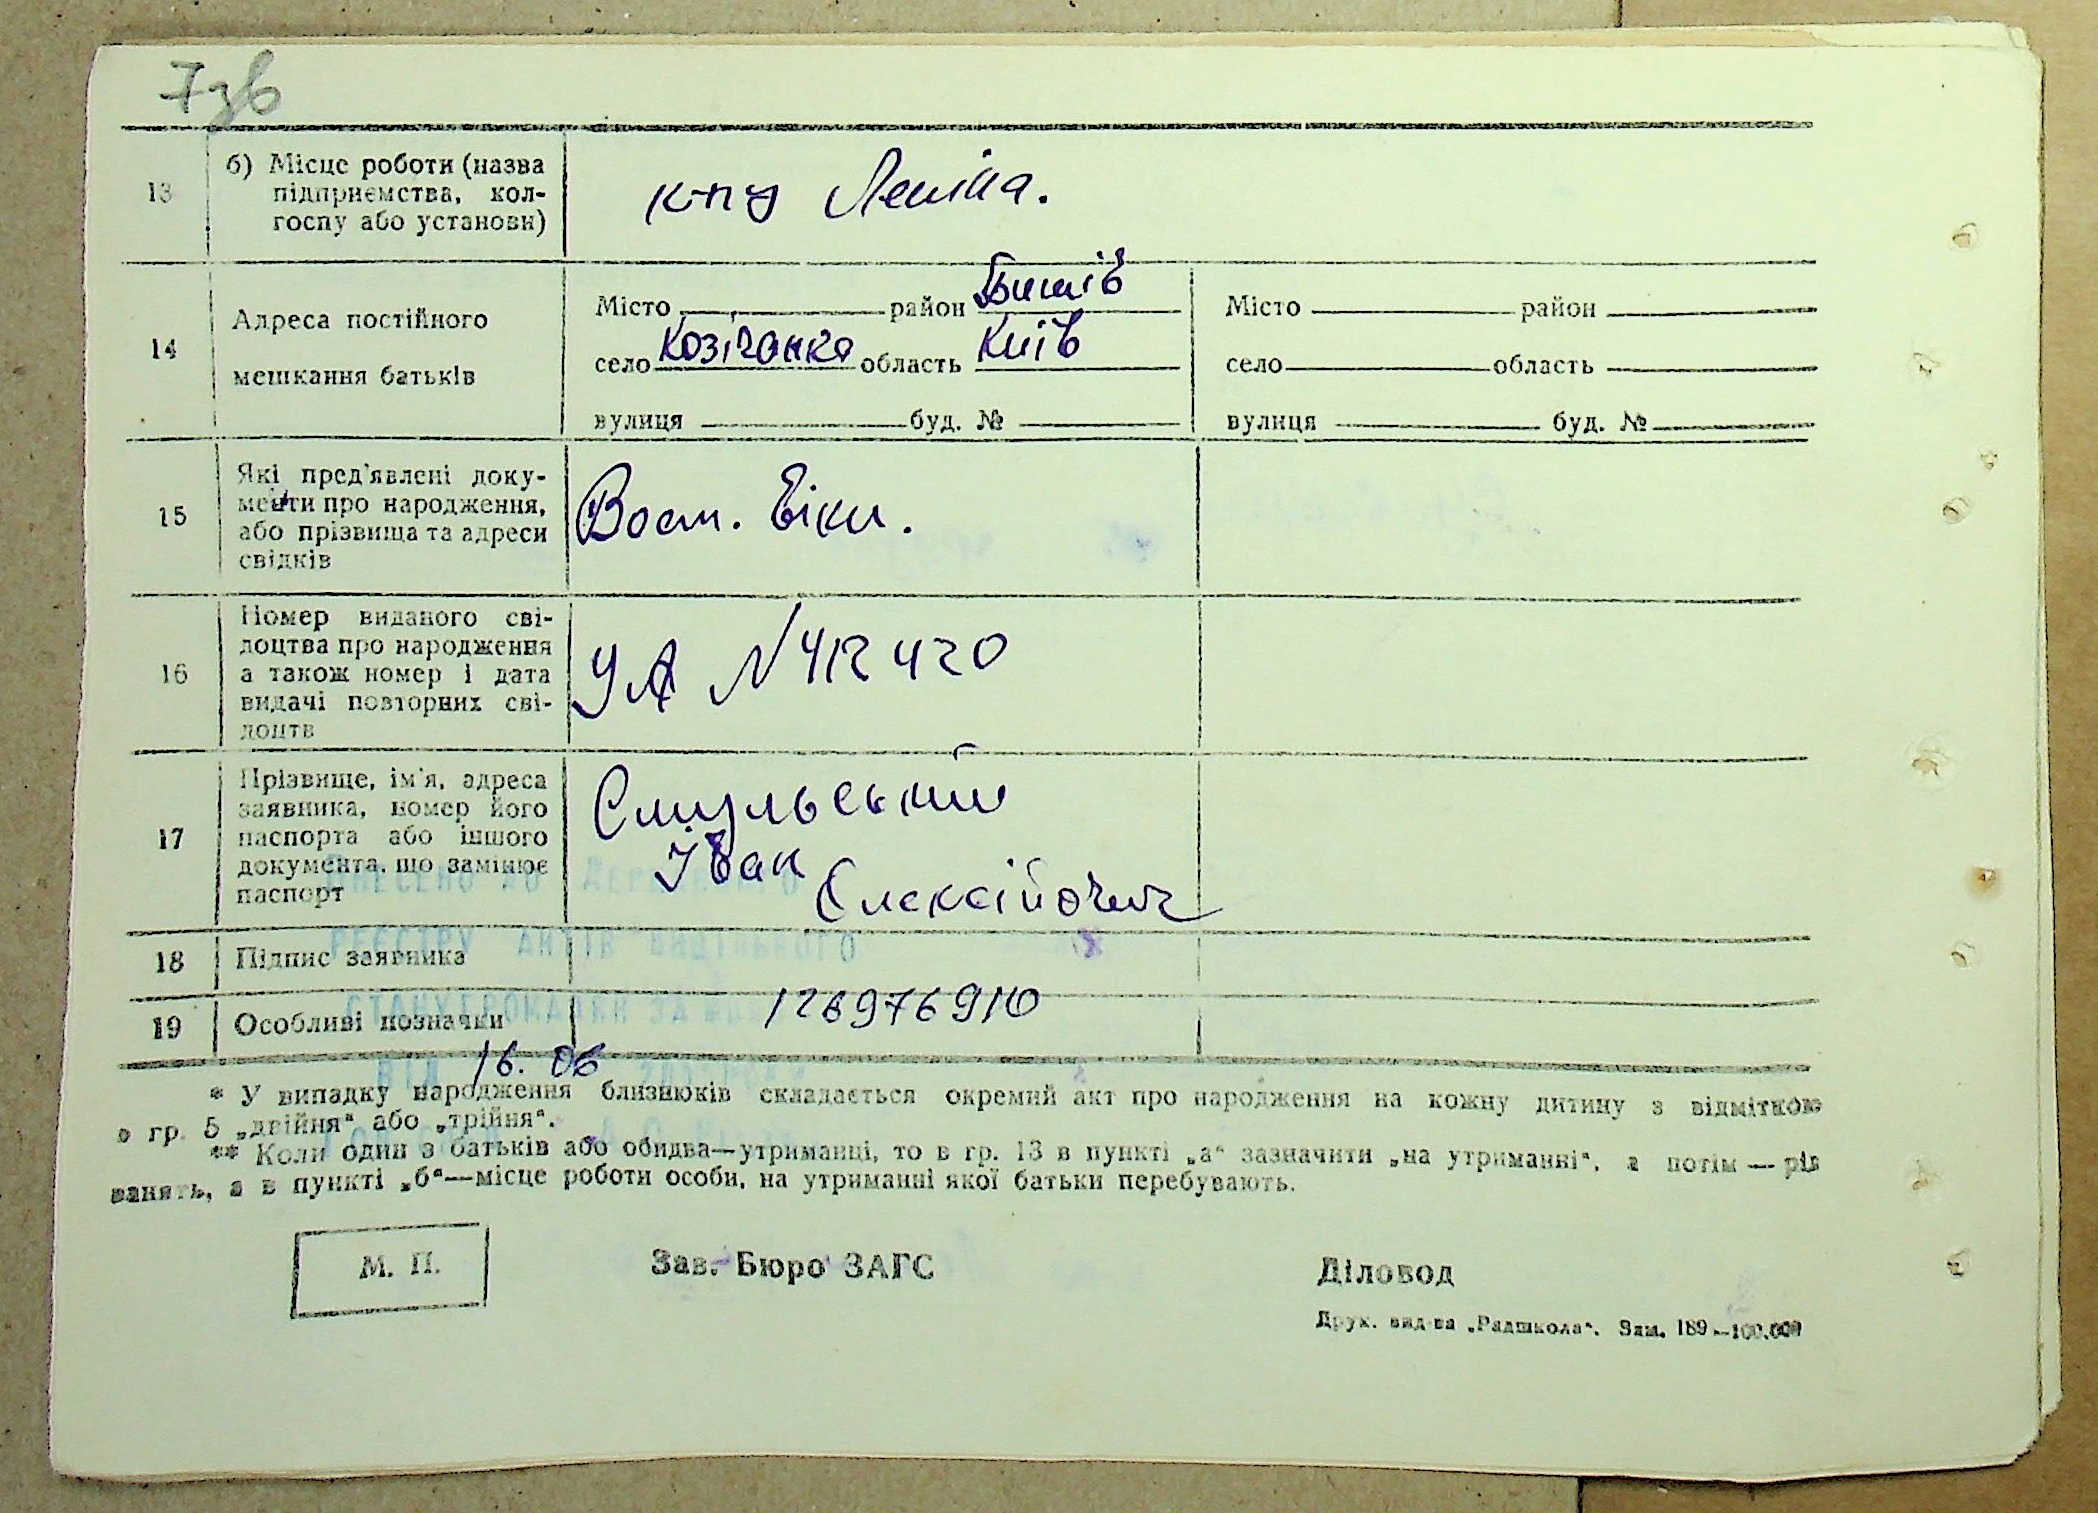 7зв
13 б) Місце роботи (назва
підприємства, кол-
госпу або установи)
к-пу Леніна.
14 Адреса постійного
мешкання батьків
Місто район Бишів
село Козічанка область Київ
вулиця буд. №
Місто район
село область
вулиця буд. №
15 Які пред'явлені доку-
менти про народження,
або прізвища та адреси
свідків
Восм. Віки.
16 Номер виданого сві-
доцтва про народження
а також номер і дата
видачі повторних сві-
доцтв
УА N 412420
17 Прізвище, ім'я, адреса
заявника, номер його
паспорта або іншого
документа, що замінює
паспорт
Іван
Олексійович
РЕЄСТРУ АКТІВ ЦИВІЛЬНОГО
18 Підпис заявника
СТАНУ ГРОМАДЯН ЗА
19 Особливі позначки
126976910
16. 06
* У випадку народження близнюків складається окремий акт про народження на кожну дитину з відміткою
в гр. 5 „двійня“ або „трійня“.
** Коли один з батьків або обидва—утриманці, то в гр. 13 в пункті „а“ зазначити „на утриманні“, а потім —
а в пункті „б“—місце роботи особи, на утриманні якої батьки перебувають.
М. П.
Зав. Бюро ЗАГС
Діловод
Друк. вид-ва „Радшкола“. Зам. 189—100.000